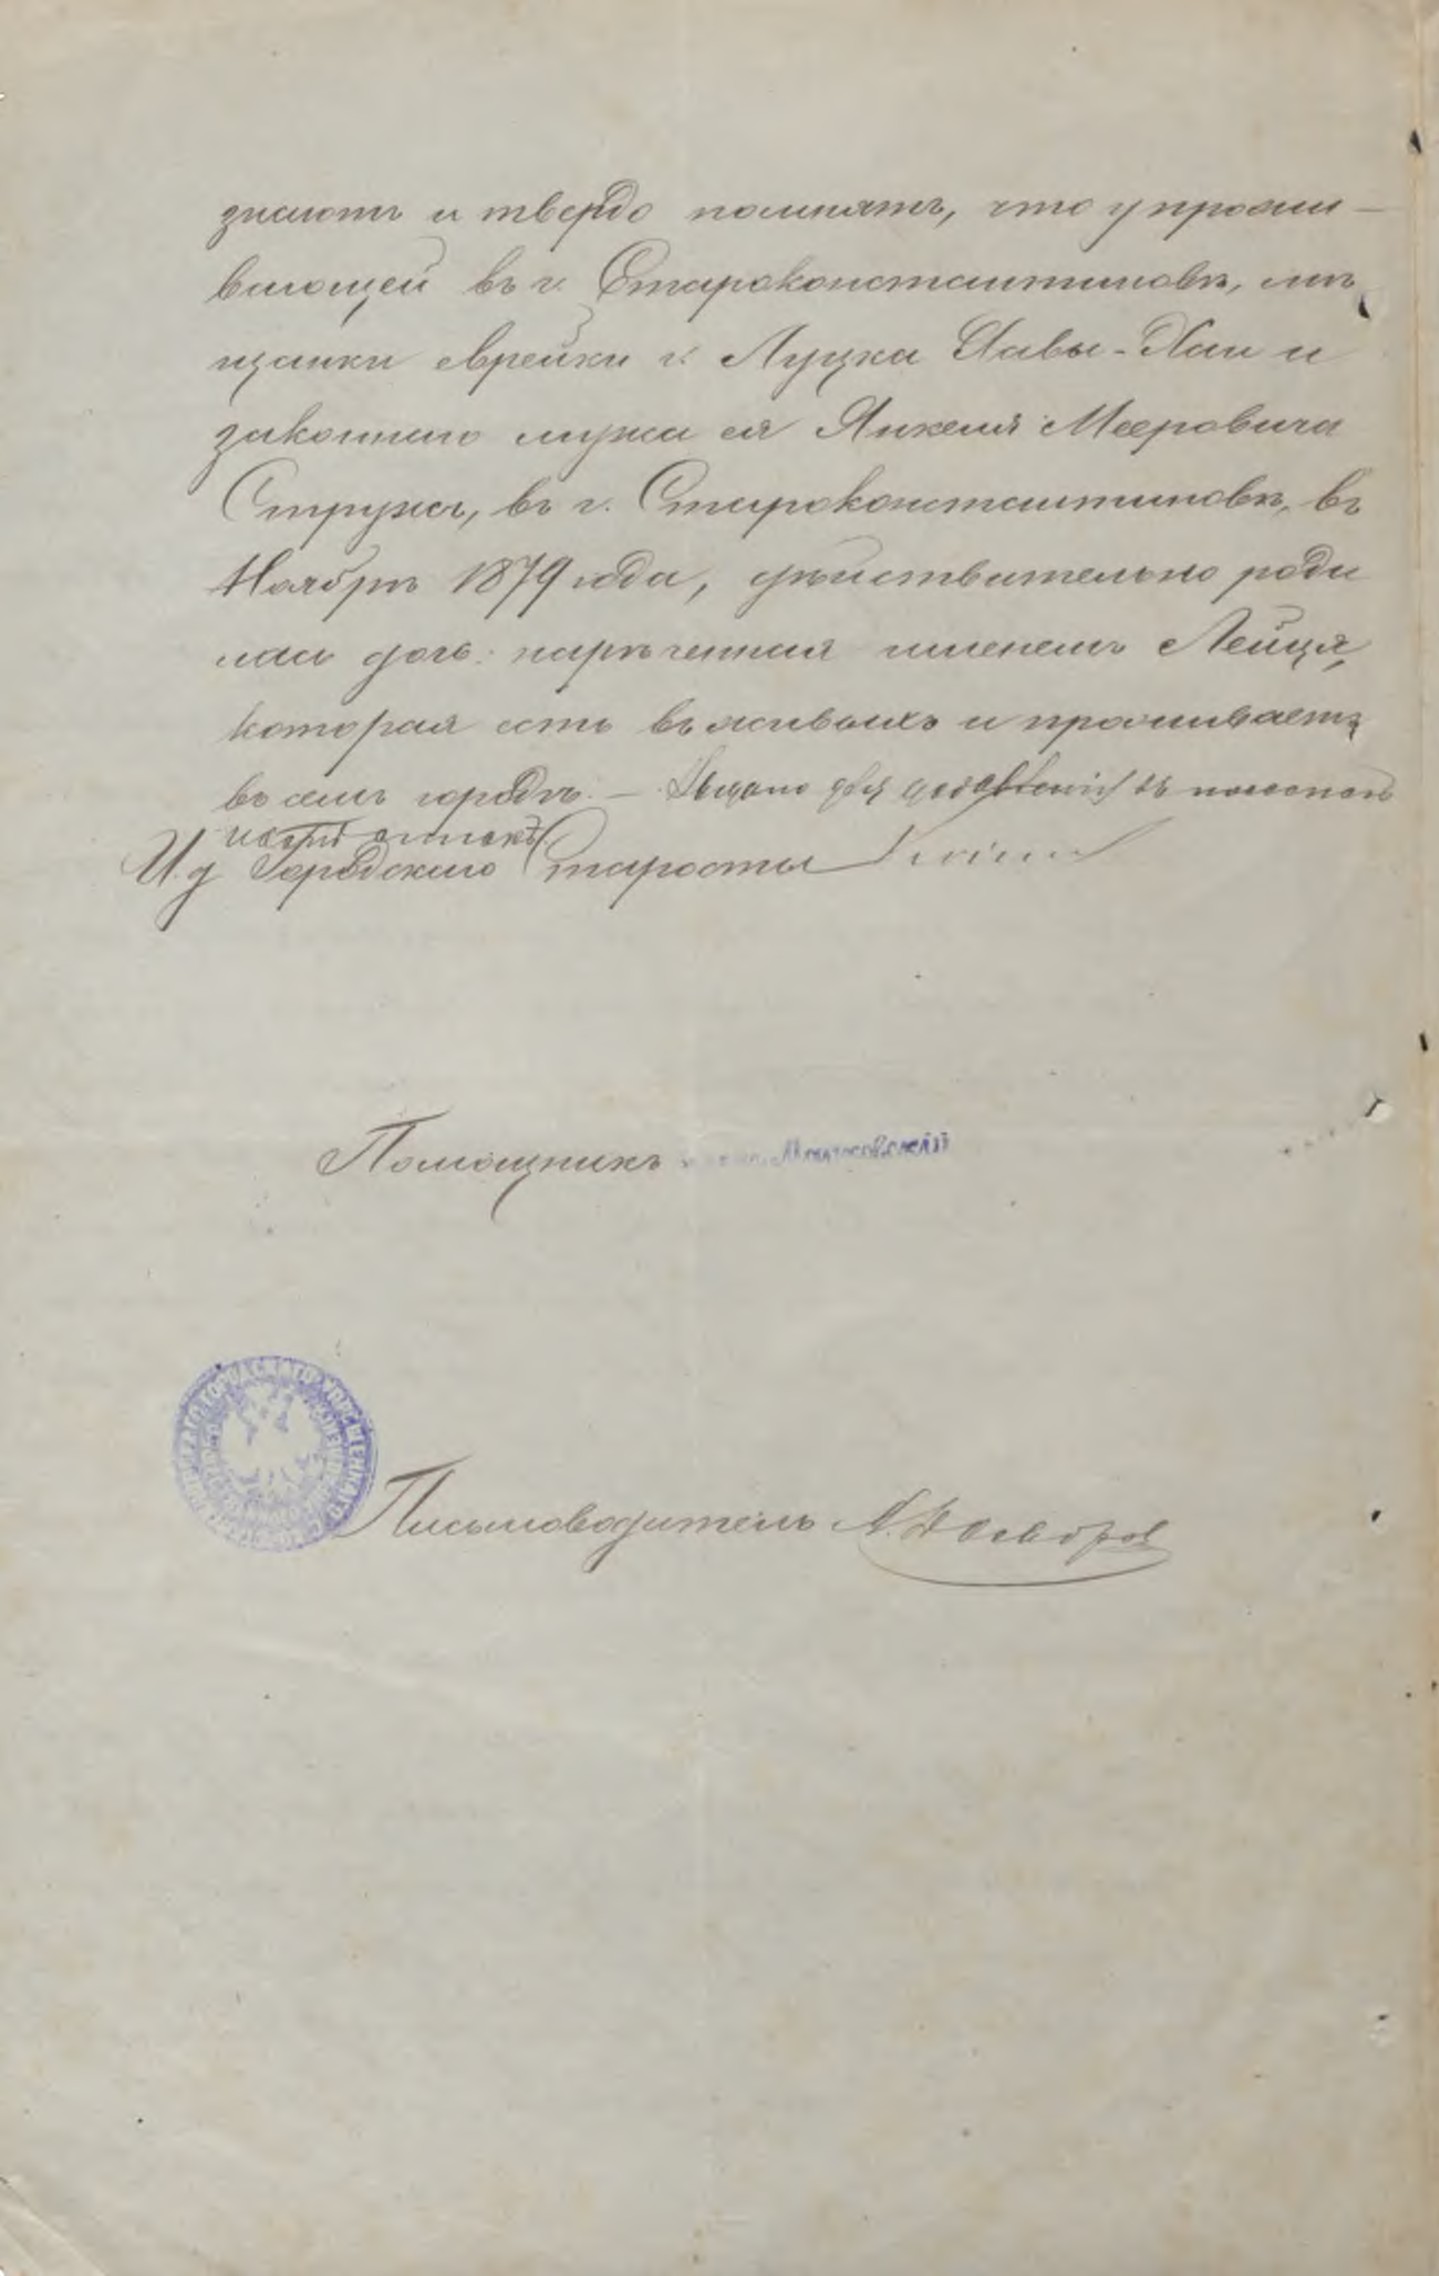 знаютъ и твердо помнятъ, что у прожи-
вающей въ г. Староконстантиновѣ, мѣ
щанки еврейки г. Луцка Хавы-Хаи и
законнаго мужа ея Янкеля Мееровича
Стружа, въ г. Староконстантиновѣ, въ
Ноябрѣ 1879 года, дѣйствительно роди
лась дочь: нареченная именемъ Лейця,
которая есть въ живыхъ и проживаетъ
въ семъ городѣ. — Выдано для
И. д Городского Старосты
Помощникъ
Письмоводитель